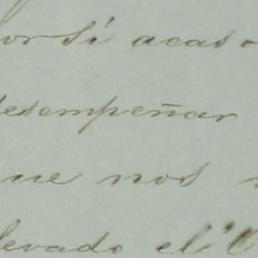 por sí acaso
desempeñar
que nos
levado el